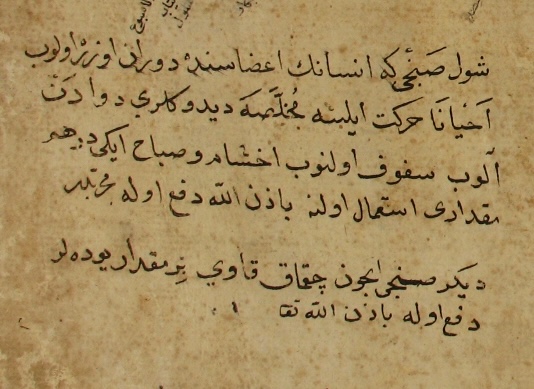 شول صَنجُی كه انسانك اعضاسنده دورانی اوزره اولوب
اَحْيانًا حركت ايلينه مُخَلَّصَه ديدوكلري دوادَن
آلوب سفوف اولنوب اخشام و صباح ايكی درهم
مقداری استعمال اولنه باذن الله دفع اوله مجرّبدر
ديكر صنجی ايچون چقاق قاوي بِر مقدار يوده لر
دفع اوله باذن الله تعا